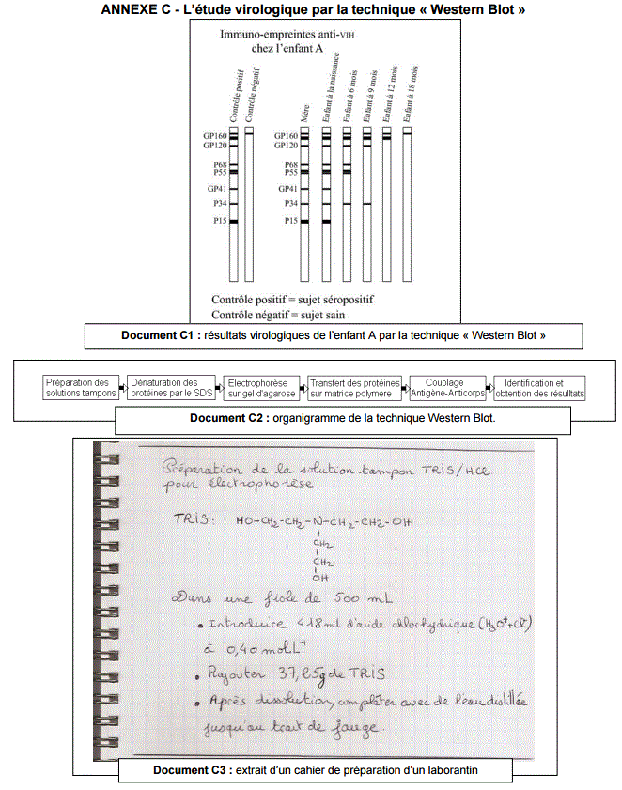 ANNEXE C - L'étude virologique par la technique « Western Blot »
Immuno-empreintes anti-VIH
chez l'enfant A
Contrôle positif
Contrôle négatif
Mère
Enfant à la naissance
Enfant à 6 mois
Enfant à 9 mois
Enfant à 12 mois
Enfant à 18 mois
GP160 GP160
GP120 GP120
P68 P68
P55 P55
GP41 GP41
P34 P34
P15 P15
Contrôle positif = sujet séropositif
Contrôle négatif = sujet sain
Document C1 : résultats virologiques de l'enfant A par la technique « Western Blot »
Préparation des
solutions tampons
Dénaturation des
protéines par le SDS
Electrophorèse
sur gel d'agarose
Transfert des protéines
sur matrice polymere
Couplage
Antigène-Anticorps
Identification et
obtention des résultats
Document C2 : organigramme de la technique Western Blot.
Préparation de la solution tampon TRIS/HCl
pour électrophorèse
TRIS: HO-CH2-CH2-N-CH2-CH2-OH
CH2
CH2
OH
Dans une fiole de 500 mL
• Introduire 418 ml d'acide chlorhydrique (H3O+ + Cl-)
à 0,40 mol.L-1
• Rajouter 37,25g de TRIS
• Après dissolution, compléter avec de l'eau distillée
jusqu'au trait de jauge.
Document C3 : extrait d'un cahier de préparation d'un laborantin